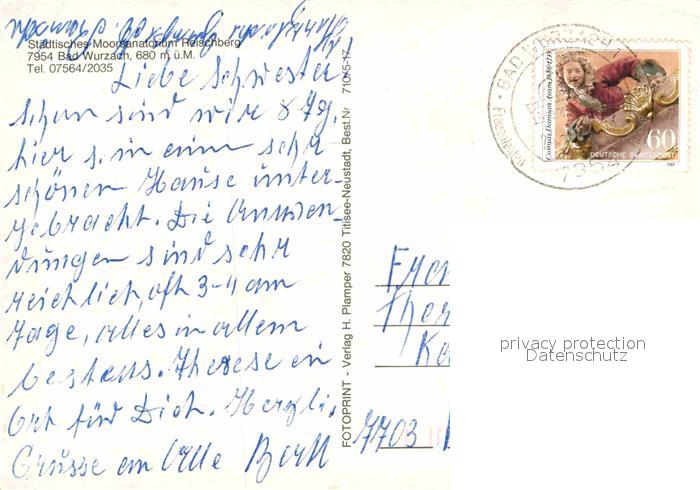 Städtisches Moorsanatorium Reischberg
7954 Bad Wurzach, 680 m ü.M.
Tel. 07564/2035
Liebe Schwester
schon sind wir 8 Tg.
hier s. in einem sehr
schönen Hause unter-
gebracht. Die Anwen-
dungen sind sehr
reichlich, oft 3-4 am
Tage, alles in allem
bestens. Therese ein
Ort für Dich. Herzli.
Grüsse an Alle
FOTOPRINT - Verlag H. Plamper 7820 Titisee-Neustadt, Best.Nr 710/5-17
BAD WURZACH 1
7954
Cosmas Damian Asam 1686-1739
60
DEUTSCHE BUNDESPOST
Frau
Ther
7703
privacy protection
Datenschutz